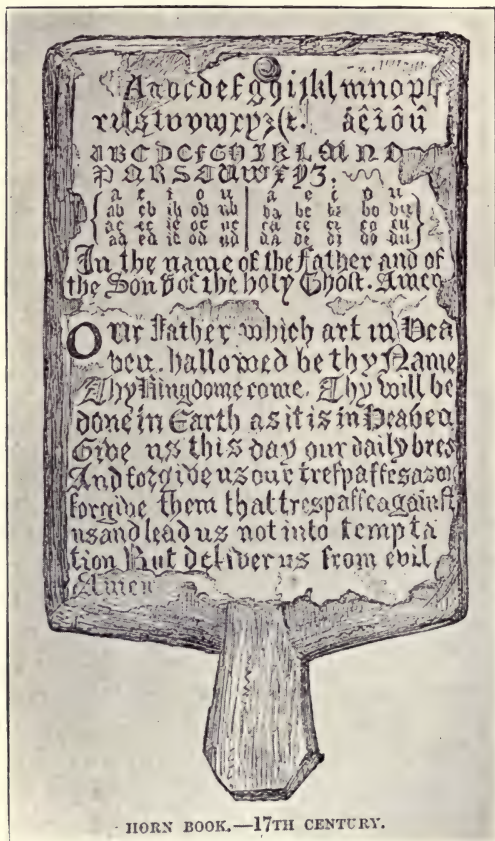 Aabcdefggijklmnopq
rſstuvwxyz&. áêîôû
ABCDEFGHIKLMNO
PQRSTUWXYZ.
a e i o u | a e i o u
ab eb ib ob ub | ba be bi bo bu
ac ec ic oc uc | ca ce ci co cu
ad ed id od ud | da de di do du
In the name of the Father and of
the Son & of the holy Ghost. Amen
Our Father which art in Hea
ven. hallowed be thy Name
Thy Kingdome come. Thy will be
done in Earth as it is in Heaven
Give us this day our daily
And forgive us our treſpaſſes as
forgive them that treſpaſſe againſt
us and lead us not into tempta
tion But deliver us from evil
Amen
HORN BOOK.—17TH CENTURY.